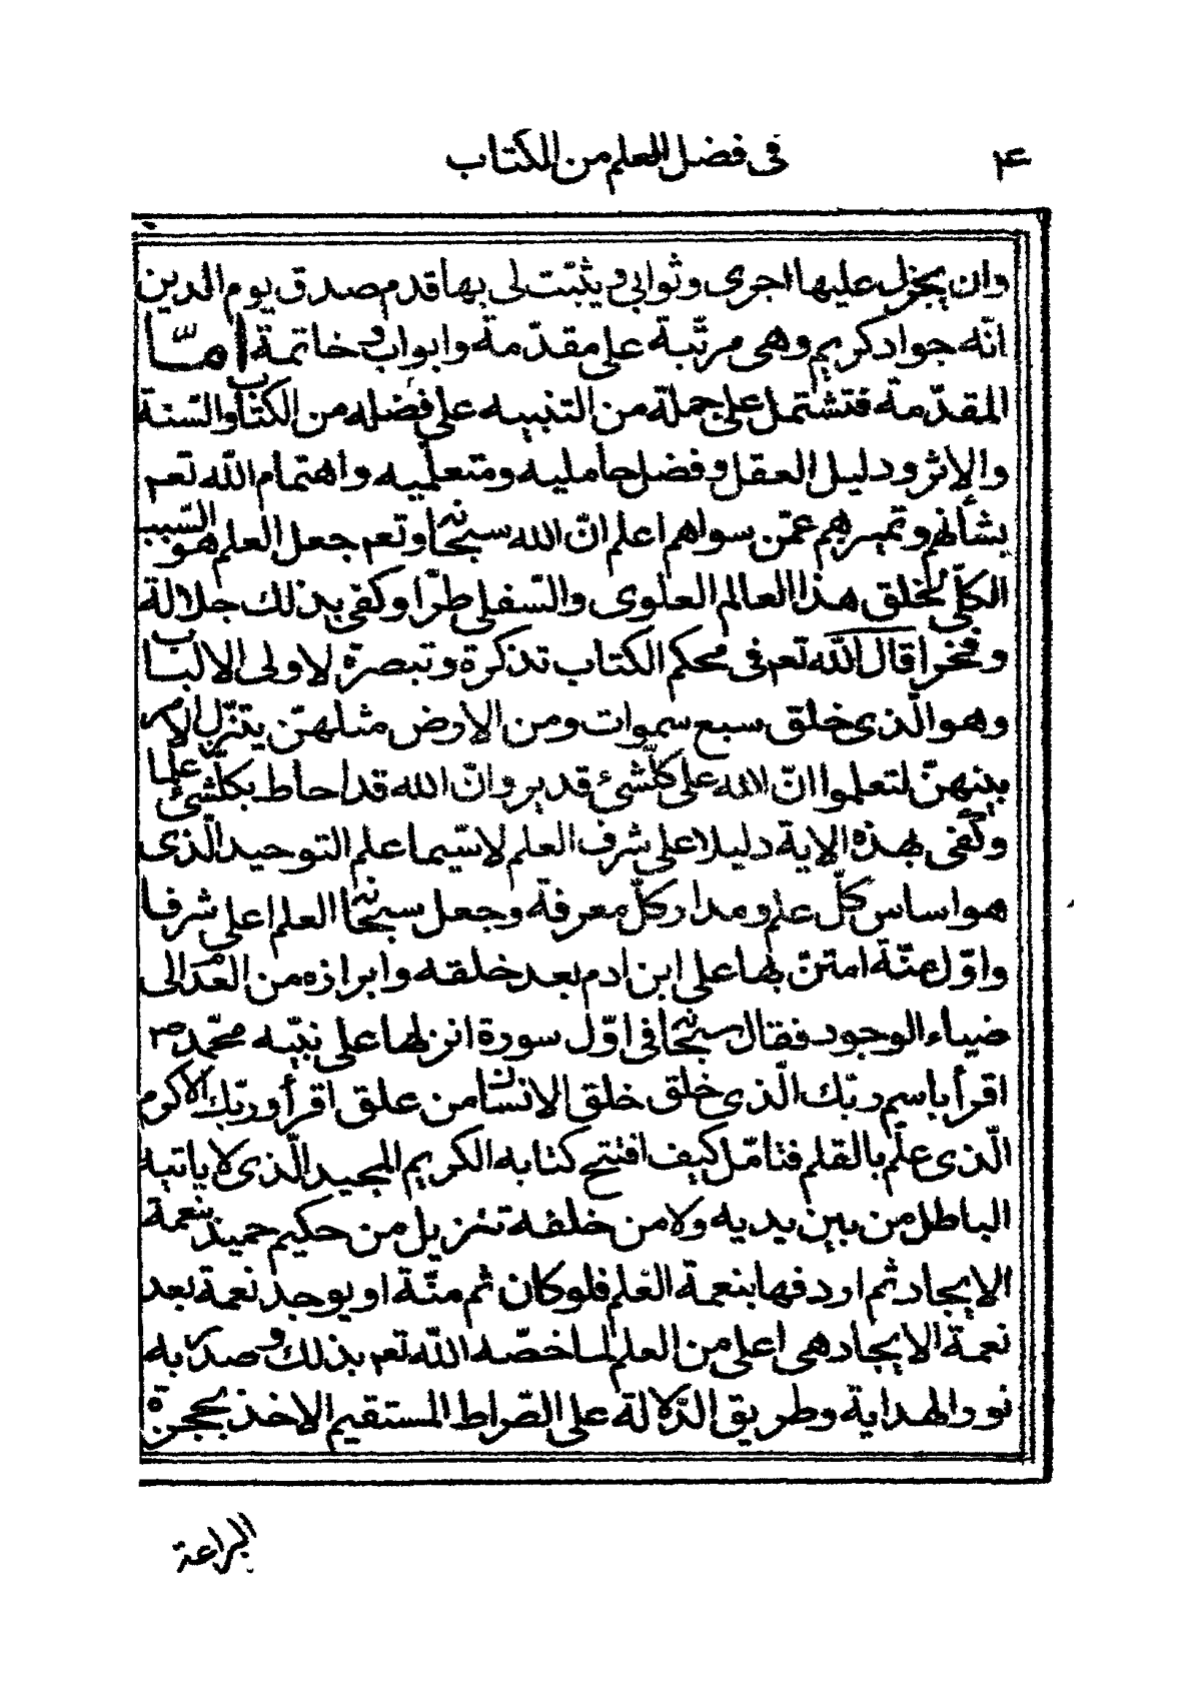 ۴
في فضل العلم من الكتاب
وان يجزل عليها اجرى وثوابى و يثبّت لى بها قدم صدق يوم الدين
انّه جواد كريم وهى مرتّبة على مقدّمة وابواب و خاتمة امّا
المقدّمة فتشتمل على جملة من التنبيه على فضله من الكتاب والسّنة
والاثر ودليل العقل وفضل حامليه ومتعلّميه واهتمام الله تعم
بشأنهم وتميزهم عمّن سواهم اعلم انّ الله سبحانه وتعم جعل العلم هو السّبب
الكلّى لخلق هذا العالم العلوى والسّفلى طرّا وكفى بذلك جلالة
وفخرا قال الله تعم فى محكم الكتاب تذكرة وتبصرة لاولى الالباب
وهو الّذى خلق سبع سموات ومن الارض مثلهنّ يتنزّل الامر
بينهنّ لتعلموا انّ الله على كلّ شئ قدير وانّ الله قد احاط بكلّ شئ علما
وكفى بهذه الاية دليلا على شرف العلم لا سّيما علم التوحيد الّذى
هو اساس كلّ علم ومدار كلّ معرفة وجعل سبحانه العلم اعلى شرفا
واوّل منّة امتنّ بها على ابن ادم بعد خلقه وابرازه من العدم الى
ضياء الوجود فقال سبحانه فى اوّل سورة انزلها على نبيّه محمّد ص
اقرأ باسم ربّك الّذى خلق خلق الانسان من علق اقرأ وربّك الاكرم
الّذى علّم بالقلم فتامّل كيف افتتح كتابه الكريم المجيد الّذى لا ياتيه
الباطل من بين يديه ولا من خلفه تنزيل من حكيم حميد بنعمة
الايجاد ثم اردفها بنعمة العلم فلو كان ثم منّة او يوجد نعمة بعد
نعمة الايجاد هى اعلى من العلم لما خصّه الله تعم بذلك و صدر به
نور الهداية وطريق الدّلالة على الصّراط المستقيم الاخذ بحجزة
البراعة